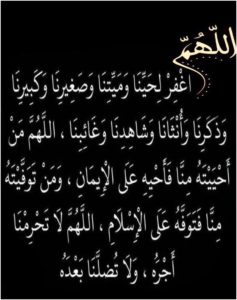 اللَّهُمَّ
اغْفِرْ لِحَيِّنَا وَمَيِّتِنَا وَصَغِيرِنَا وَكَبِيرِنَا
وَذَكَرِنَا وَأُنْثَانَا وَشَاهِدِنَا وَغَائِبِنَا ، اللَّهُمَّ مَنْ
أَحْيَيْتَهُ مِنَّا فَأَحْيِهِ عَلَى الْإِيمَانِ ، وَمَنْ تَوَفَّيْتَهُ
مِنَّا فَتَوَفَّهُ عَلَى الْإِسْلَامِ ، اللَّهُمَّ لَا تَحْرِمْنَا
أَجْرَهُ ، وَلَا تُضِلَّنَا بَعْدَهُ